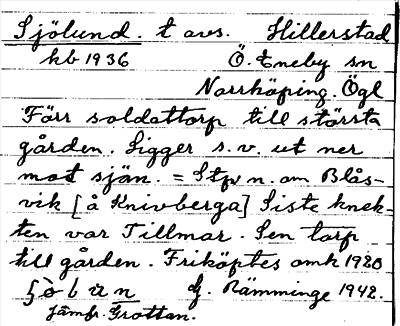 Sjölund. t avs. Hillerstad
kb 1936 Ö. Eneby sn
Norrköping. Ögl
Förr soldattorp till största
gården. Ligger s.v. ut ner
mot sjön. = Stpv n. om Blås-
vik [å Knivberga] Siste knek-
ten var Tillmar. Sen torp
till gården. Friköptes omk 1920
G. Rämminge 1942.
Jämför. Grottan.